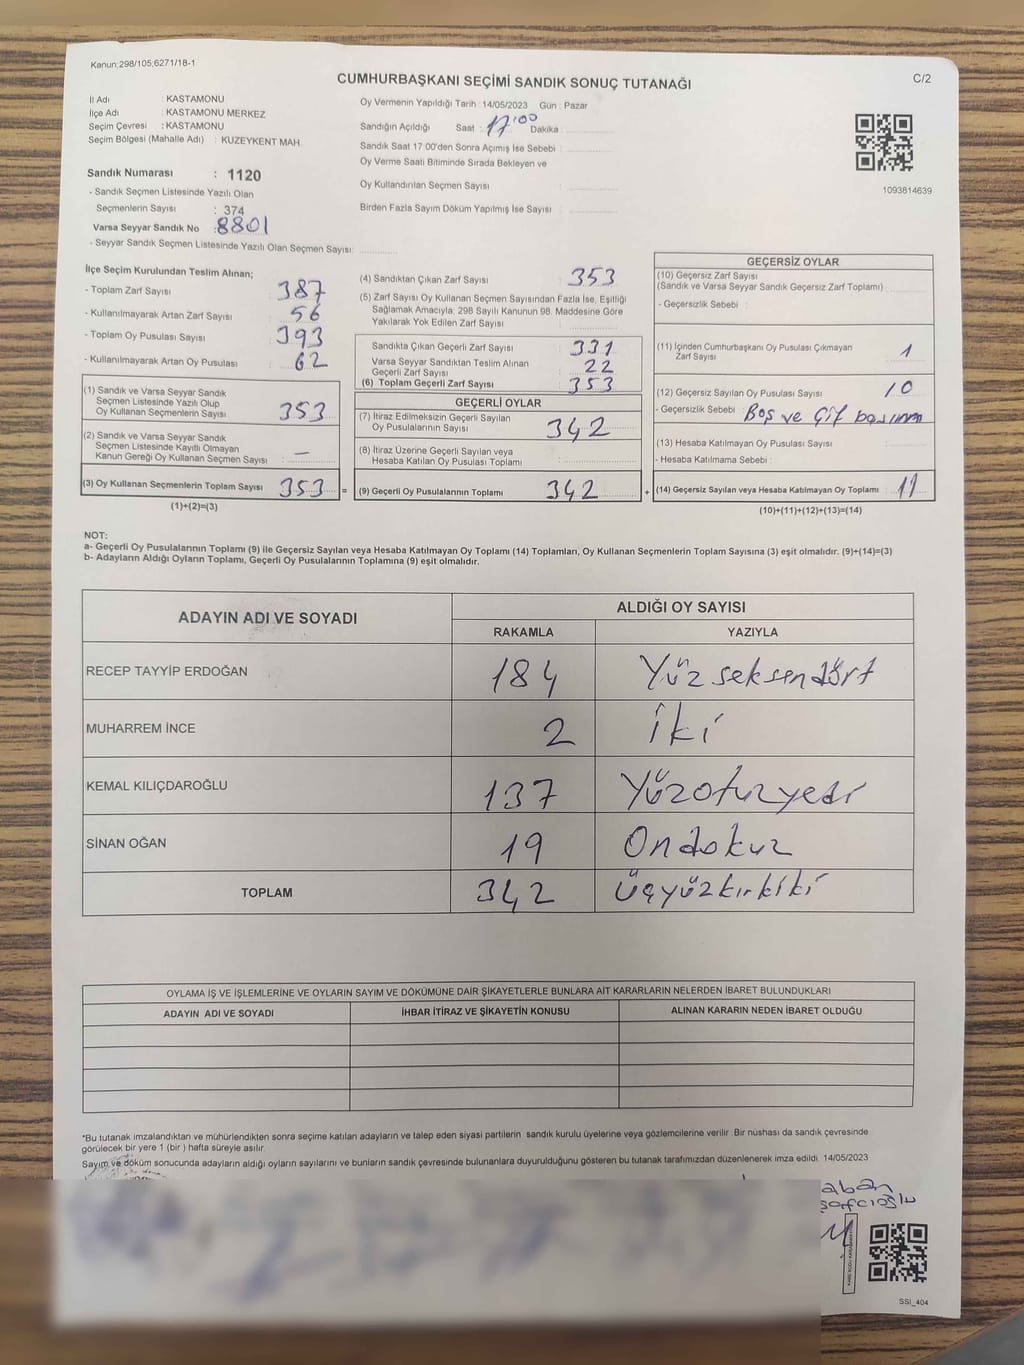 Kanun;298/105;6271/18-1
CUMHURBAŞKANI SEÇİMİ SANDIK SONUÇ TUTANAĞI
C/2
İl Adı : KASTAMONU
İlçe Adı : KASTAMONU MERKEZ
Seçim Çevresi : KASTAMONU
Seçim Bölgesi (Mahalle Adı) : KUZEYKENT MAH.
Sandık Numarası : 1120
- Sandık Seçmen Listesinde Yazılı Olan
Seçmenlerin Sayısı : 374
Varsa Seyyar Sandık No : 8801
- Seyyar Sandık Seçmen Listesinde Yazılı Olan Seçmen Sayısı:
Oy Vermenin Yapıldığı Tarih : 14/05/2023 Gün : Pazar
Sandığın Açıldığı Saat : 17:00 Dakika :
Sandık Saat 17:00'den Sonra Açımış İse Sebebi :
Oy Verme Saati Bitiminde Sırada Bekleyen ve
Oy Kullandırılan Seçmen Sayısı :
Birden Fazla Sayım Döküm Yapılmış İse Sayısı :
1093814639
İlçe Seçim Kurulundan Teslim Alınan;
- Toplam Zarf Sayısı : 387
- Kullanılmayarak Artan Zarf Sayısı : 56
- Toplam Oy Pusulası Sayısı : 393
- Kullanılmayarak Artan Oy Pusulası : 62
(1) Sandık ve Varsa Seyyar Sandık
Seçmen Listesinde Yazılı Olup
Oy Kullanan Seçmenlerin Sayısı : 353
(2) Sandık ve Varsa Seyyar Sandık
Seçmen Listesinde Kayıtlı Olmayan
Kanun Gereği Oy Kullanan Seçmen Sayısı : –
(3) Oy Kullanan Seçmenlerin Toplam Sayısı : 353 =
(1)+(2)=(3)
(4) Sandıktan Çıkan Zarf Sayısı : 353
(5) Zarf Sayısı Oy Kullanan Seçmen Sayısından Fazla İse, Eşitliği
Sağlamak Amacıyla; 298 Sayılı Kanunun 98. Maddesine Göre
Yakılarak Yok Edilen Zarf Sayısı :
Sandıkta Çıkan Geçerli Zarf Sayısı : 331
Varsa Seyyar Sandıktan Teslim Alınan
Geçerli Zarf Sayısı : 22
(6) Toplam Geçerli Zarf Sayısı : 353
GEÇERLİ OYLAR
(7) İtiraz Edilmeksizin Geçerli Sayılan
Oy Pusulalarının Sayısı : 342
(8) İtiraz Üzerine Geçerli Sayılan veya
Hesaba Katılan Oy Pusulası Toplamı :
(9) Geçerli Oy Pusulalarının Toplamı : 342 +
GEÇERSİZ OYLAR
(10) Geçersiz Zarf Sayısı
(Sandık ve Varsa Seyyar Sandık Geçersiz Zarf Toplamı)
- Geçersizlik Sebebi :
(11) İçinden Cumhurbaşkanı Oy Pusulası Çıkmayan
Zarf Sayısı : 1
(12) Geçersiz Sayılan Oy Pusulası Sayısı : 10
- Geçersizlik Sebebi : Boş ve Çif basımın
(13) Hesaba Katılmayan Oy Pusulası Sayısı :
- Hesaba Katılmama Sebebi :
(14) Geçersiz Sayılan veya Hesaba Katılmayan Oy Toplamı : 11
(10)+(11)+(12)+(13)=(14)
NOT:
a- Geçerli Oy Pusulalarının Toplamı (9) ile Geçersiz Sayılan veya Hesaba Katılmayan Oy Toplamı (14) Toplamları, Oy Kullanan Seçmenlerin Toplam Sayısına (3) eşit olmalıdır. (9)+(14)=(3)
b- Adayların Aldığı Oyların Toplamı, Geçerli Oy Pusulalarının Toplamına (9) eşit olmalıdır.
ADAYIN ADI VE SOYADI
ALDIĞI OY SAYISI
RAKAMLA YAZIYLA
RECEP TAYYİP ERDOĞAN 184 Yüz seksendört
MUHARREM İNCE 2 İki
KEMAL KILIÇDAROĞLU 137 Yüzotuzyedi
SİNAN OĞAN 19 Ondokuz
TOPLAM 342 Üçyüzkırkiki
OYLAMA İŞ VE İŞLEMLERİNE VE OYLARIN SAYIM VE DÖKÜMÜNE DAİR ŞİKAYETLERLE BUNLARA AİT KARARLARIN NELERDEN İBARET BULUNDUKLARI
ADAYIN ADI VE SOYADI İHBAR İTİRAZ VE ŞİKAYETİN KONUSU ALINAN KARARIN NEDEN İBARET OLDUĞU
*Bu tutanak imzalandıktan ve mühürlendikten sonra seçime katılan adayların ve talep eden siyasi partilerin sandık kurulu üyelerine veya gözlemcilerine verilir. Bir nüshası da sandık çevresinde
görülecek bir yere 1 (bir) hafta süreyle asılır.
Sayım ve döküm sonucunda adayların aldığı oyların sayılarını ve bunların sandık çevresinde bulunanlara duyurulduğunu gösteren bu tutanak tarafımızdan düzenlenerek imza edildi. 14/05/2023
aban
SSI_404